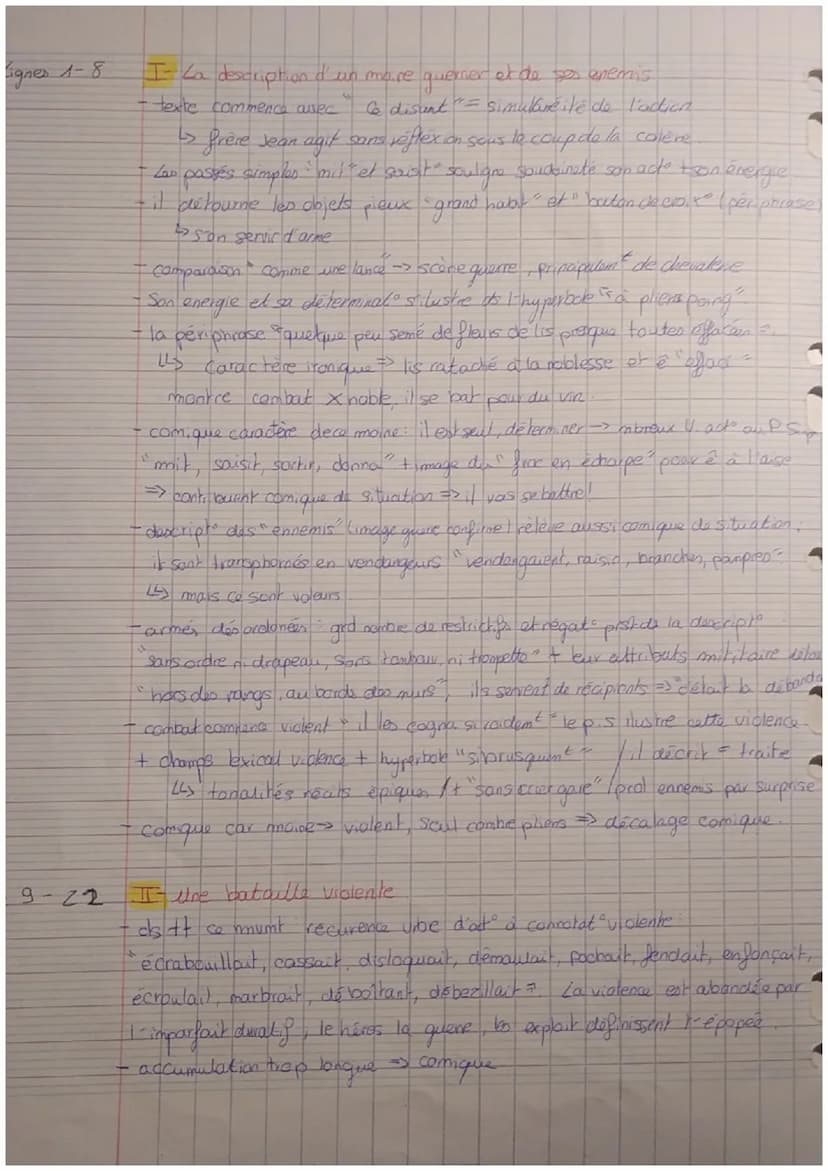 Lignes 1-8 I- La description d'un moine guerrier et de ses ennemis
- texte commence avec "Ce disant" = simultanéité de l'action
↳ frère Jean agit sans réflexion sous le coup de la colère.
- Les passés simples "mit" et "saisit" souligne soudaineté son act° + son énergie
- il détourne les objets pieux "grand habit" et "baton de croix" (périphrase)
↳ son servir d'arme
- comparaison "comme une lance" → scène guerre, principalemt de chevalerie
- Son energie et sa déterminat° s'ilustre ds l'hyperbole "à pleins poing"
- la périphrase "quelque peu semé de fleurs de lis presque toutes effacées"
↳ caractère ironique ⇒ lis rataché à la noblesse et ê "effacé"
montre combat X noble, il se bat pour du vin.
- comique caractère de ce moine: il est seul, déterminer → nbreux V. act° au P.S
"mit, saisit, sortir, donna" + image du "froc en écharpe" pour ê à l'aise
⇒ contribuent comique de situation ⇒ il vas se battre!
- descript° des "ennemis" (image guerre confirme) relève aussi comique de situation:
il sont transphormés en vendangeurs "vendangeaient, raisin, branches, pampres"
↳ mais ce sont voleurs
- armés désordonées: grd nombre de restrictifs et négat° prst ds la descript°
"sans ordre ni drapeau, sans tambour, ni trompette" + leur attributs militaire
"hors des rangs, au bords des murs", ils servent de récipients ⇒ "c'était la débanda
- combat commence violent "il les cogna si raidemt" le p.s ilustre cette violence
+ champs lexical violence + hyperbole "si brusquemt" / il décrit = traite
↳ tonalités réals épiques / + "sans crier gare" / prd ennemis par surprise
- comique car moine → violent, seul contre pleins ⇒ décalage comique.
9-22 II- Une bataille violente
- ds tt ce mvmt récurence vrbe d'act° à connotat° violente
"écrabouillait, cassait, disloquait, démoulait, pochait, fendait, enfonçait,
écroulait, marbrait, déboîtant, débezillait". La violence est abandée par
l'imparfait duratif, le héros la guerre, les exploit définissent l'épopée.
- accumulation trop longue ⇒ comique